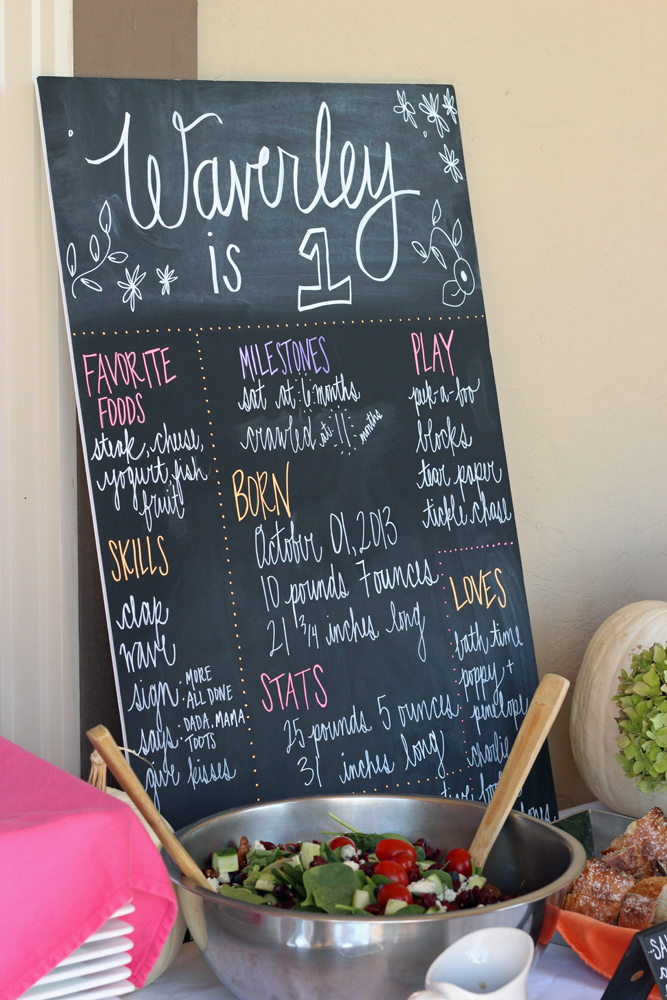 Waverley
is 1
FAVORITE
FOODS
steak, cheese,
yogurt, fish
fruit
SKILLS
clap
wave
sign: MORE
ALL DONE
says: DADA, MAMA
TOOTS
give kisses
MILESTONES
sat at: 6 months
crawled at: 11 months
BORN
October 01, 2013
10 pounds 7 ounces
21 3/4 inches long
STATS
25 pounds 5 ounces
31 inches long
PLAY
peek-a-boo
blocks
tear paper
tickle, chase
LOVES
bath time
poppy +
penelope
charlie